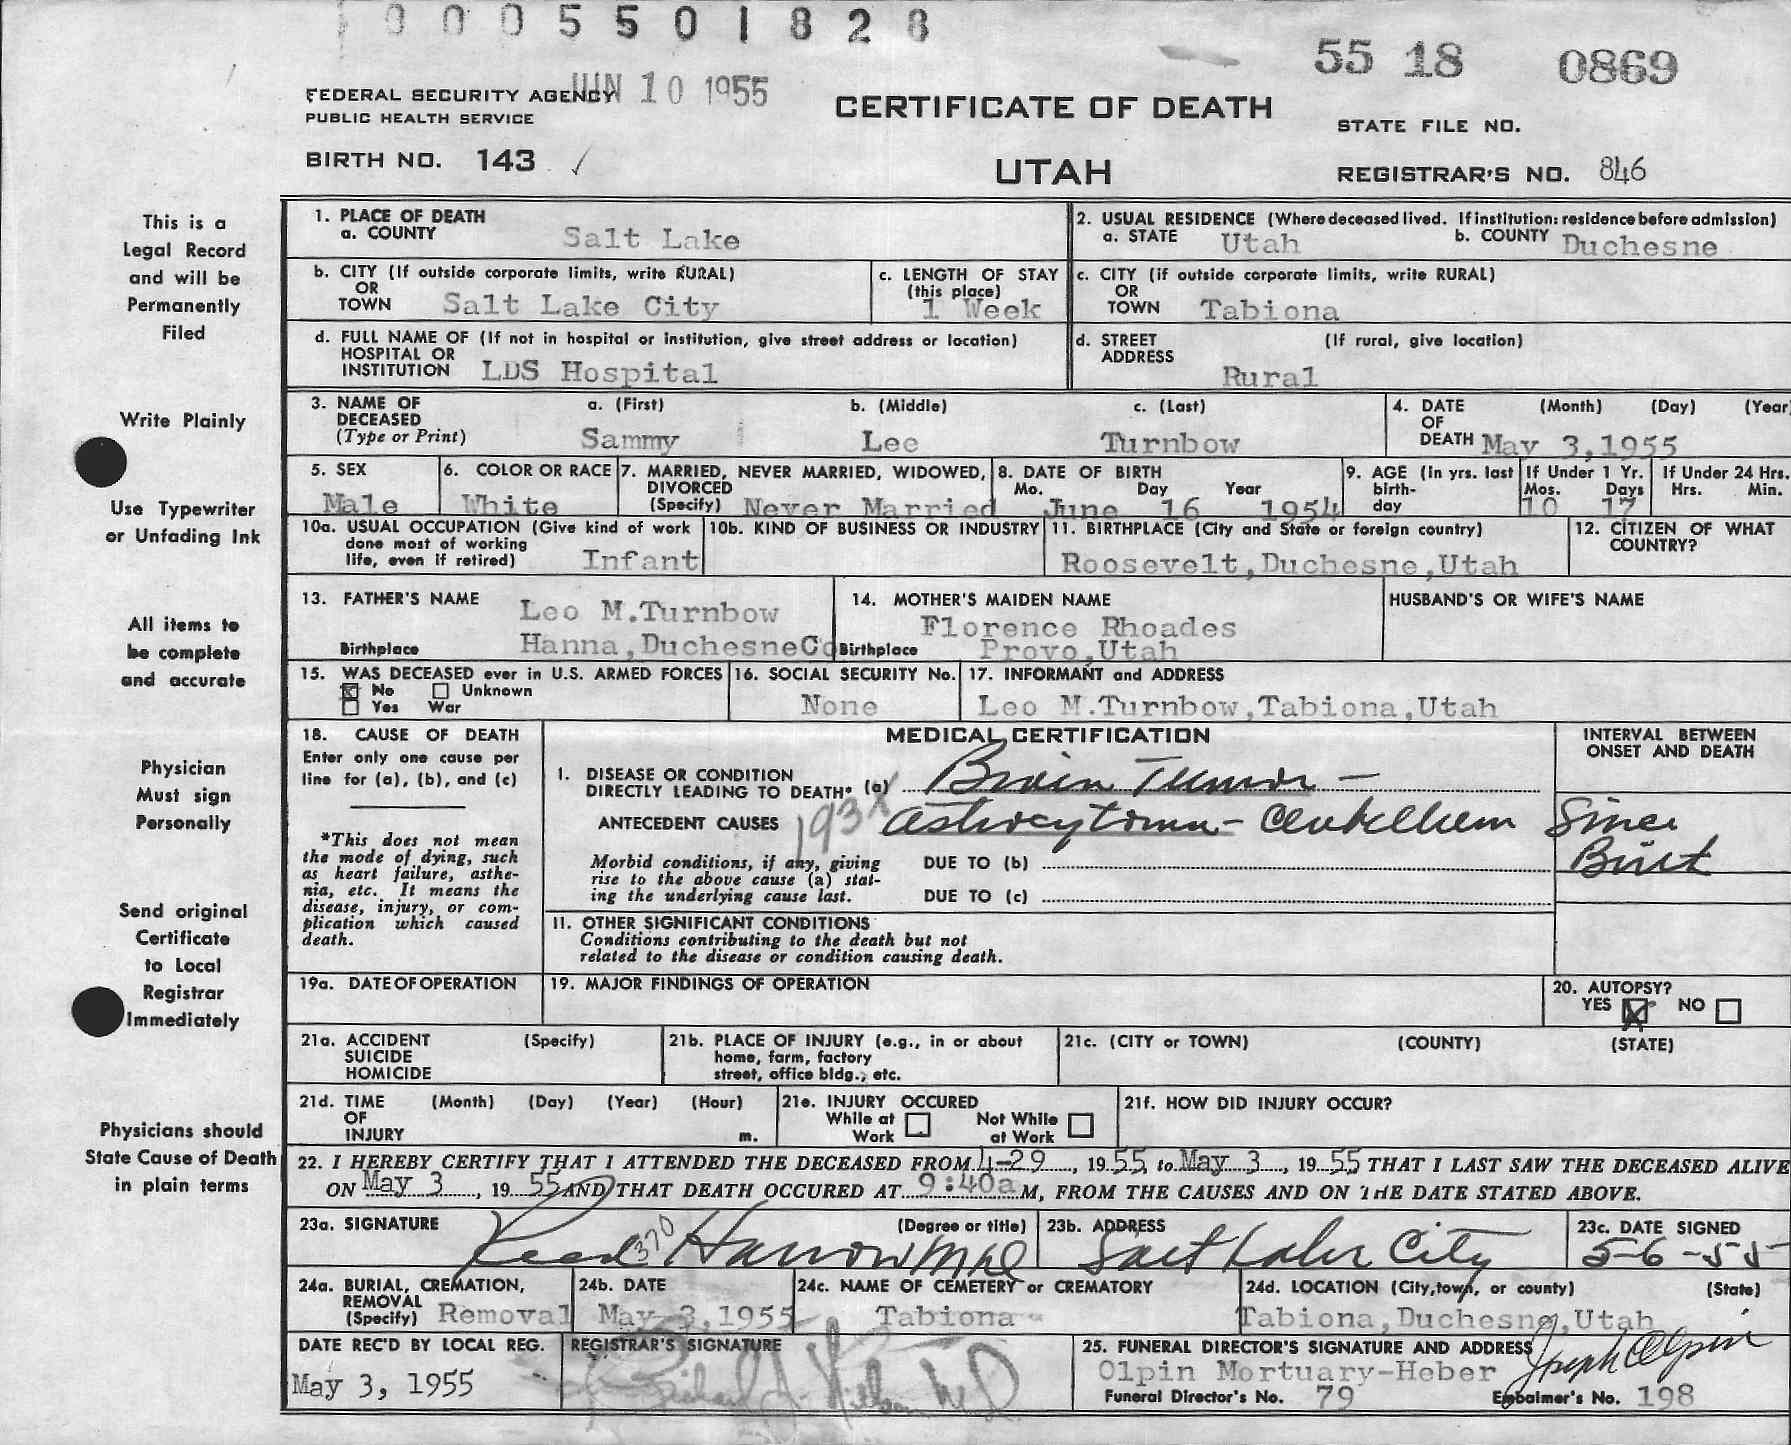 0 0 0 5 5 0 1 8 2 8
55 18 0869
JUN 10 1955
FEDERAL SECURITY AGENCY
PUBLIC HEALTH SERVICE
CERTIFICATE OF DEATH
STATE FILE NO.
BIRTH NO. 143 ✓
UTAH
REGISTRAR'S NO. 846
This is a
Legal Record
and will be
Permanently
Filed
Write Plainly
Use Typewriter
or Unfading Ink
All items to
be complete
and accurate
Physician
Must sign
Personally
Send original
Certificate
to Local
Registrar
Immediately
Physicians should
State Cause of Death
in plain terms
1. PLACE OF DEATH
a. COUNTY Salt Lake
2. USUAL RESIDENCE (Where deceased lived. If institution: residence before admission)
a. STATE Utah b. COUNTY Duchesne
b. CITY (If outside corporate limits, write RURAL)
OR
TOWN Salt Lake City
c. LENGTH OF STAY
(this place)
1 Week
c. CITY (if outside corporate limits, write RURAL)
OR
TOWN Tabiona
d. FULL NAME OF (If not in hospital or institution, give street address or location)
HOSPITAL OR
INSTITUTION LDS Hospital
d. STREET (If rural, give location)
ADDRESS
Rural
3. NAME OF a. (First) b. (Middle) c. (Last)
DECEASED
(Type or Print) Sammy Lee Turnbow
4. DATE (Month) (Day) (Year
OF
DEATH May 3,1955
5. SEX
Male
6. COLOR OR RACE
White
7. MARRIED, NEVER MARRIED, WIDOWED,
DIVORCED
(Specify) Never Married
8. DATE OF BIRTH
Mo. Day Year
June 16 1954
9. AGE (In yrs. last
birth-
day
If Under 1 Yr.
Mos. Days
10 17
If Under 24 Hrs.
Hrs. Min.
10a. USUAL OCCUPATION (Give kind of work
done most of working
life, even if retired) Infant
10b. KIND OF BUSINESS OR INDUSTRY
11. BIRTHPLACE (City and State or foreign country)
Roosevelt,Duchesne,Utah
12. CITIZEN OF WHAT
COUNTRY?
13. FATHER'S NAME Leo M.Turnbow
Birthplace Hanna,DuchesneCo
14. MOTHER'S MAIDEN NAME
Florence Rhoades
Birthplace Provo,Utah
HUSBAND'S OR WIFE'S NAME
15. WAS DECEASED ever in U.S. ARMED FORCES
☒ No ☐ Unknown
☐ Yes War
16. SOCIAL SECURITY No.
None
17. INFORMANT and ADDRESS
Leo M.Turnbow,Tabiona,Utah
18. CAUSE OF DEATH
Enter only one cause per
line for (a), (b), and (c)
*This does not mean
the mode of dying, such
as heart failure, asthe-
nia, etc. It means the
disease, injury, or com-
plication which caused
death.
MEDICAL CERTIFICATION
INTERVAL BETWEEN
ONSET AND DEATH
I. DISEASE OR CONDITION
DIRECTLY LEADING TO DEATH* (a) Brain Tumor -
ANTECEDENT CAUSES 193X Astrocytoma - Cerebellum Since
Birth
Morbid conditions, if any, giving
rise to the above cause (a) stat-
ing the underlying cause last.
DUE TO (b)
DUE TO (c)
II. OTHER SIGNIFICANT CONDITIONS
Conditions contributing to the death but not
related to the disease or condition causing death.
19a. DATE OF OPERATION
19. MAJOR FINDINGS OF OPERATION
20. AUTOPSY?
YES ☒ NO ☐
21a. ACCIDENT (Specify)
SUICIDE
HOMICIDE
21b. PLACE OF INJURY (e.g., in or about
home, farm, factory
street, office bldg., etc.
21c. (CITY or TOWN) (COUNTY) (STATE)
21d. TIME (Month) (Day) (Year) (Hour)
OF
INJURY m.
21e. INJURY OCCURED
While at Work ☐ Not While at Work ☐
21f. HOW DID INJURY OCCUR?
22. I HEREBY CERTIFY THAT I ATTENDED THE DECEASED FROM 4-29, 1955 to May 3, 1955 THAT I LAST SAW THE DECEASED ALIVE
ON May 3, 1955 AND THAT DEATH OCCURED AT 9:40a M, FROM THE CAUSES AND ON THE DATE STATED ABOVE.
23a. SIGNATURE (Degree or title)
Reed Harrow MD
370
23b. ADDRESS
Salt Lake City
23c. DATE SIGNED
5-6-55
24a. BURIAL, CREMATION,
REMOVAL
(Specify) Removal
24b. DATE
May 3,1955
24c. NAME OF CEMETERY or CREMATORY
Tabiona
24d. LOCATION (City, town, or county) (State)
Tabiona,Duchesne,Utah
DATE REC'D BY LOCAL REG.
May 3, 1955
REGISTRAR'S SIGNATURE
25. FUNERAL DIRECTOR'S SIGNATURE AND ADDRESS
Joseph Olpin
Olpin Mortuary-Heber
Funeral Director's No. 79 Embalmer's No. 198